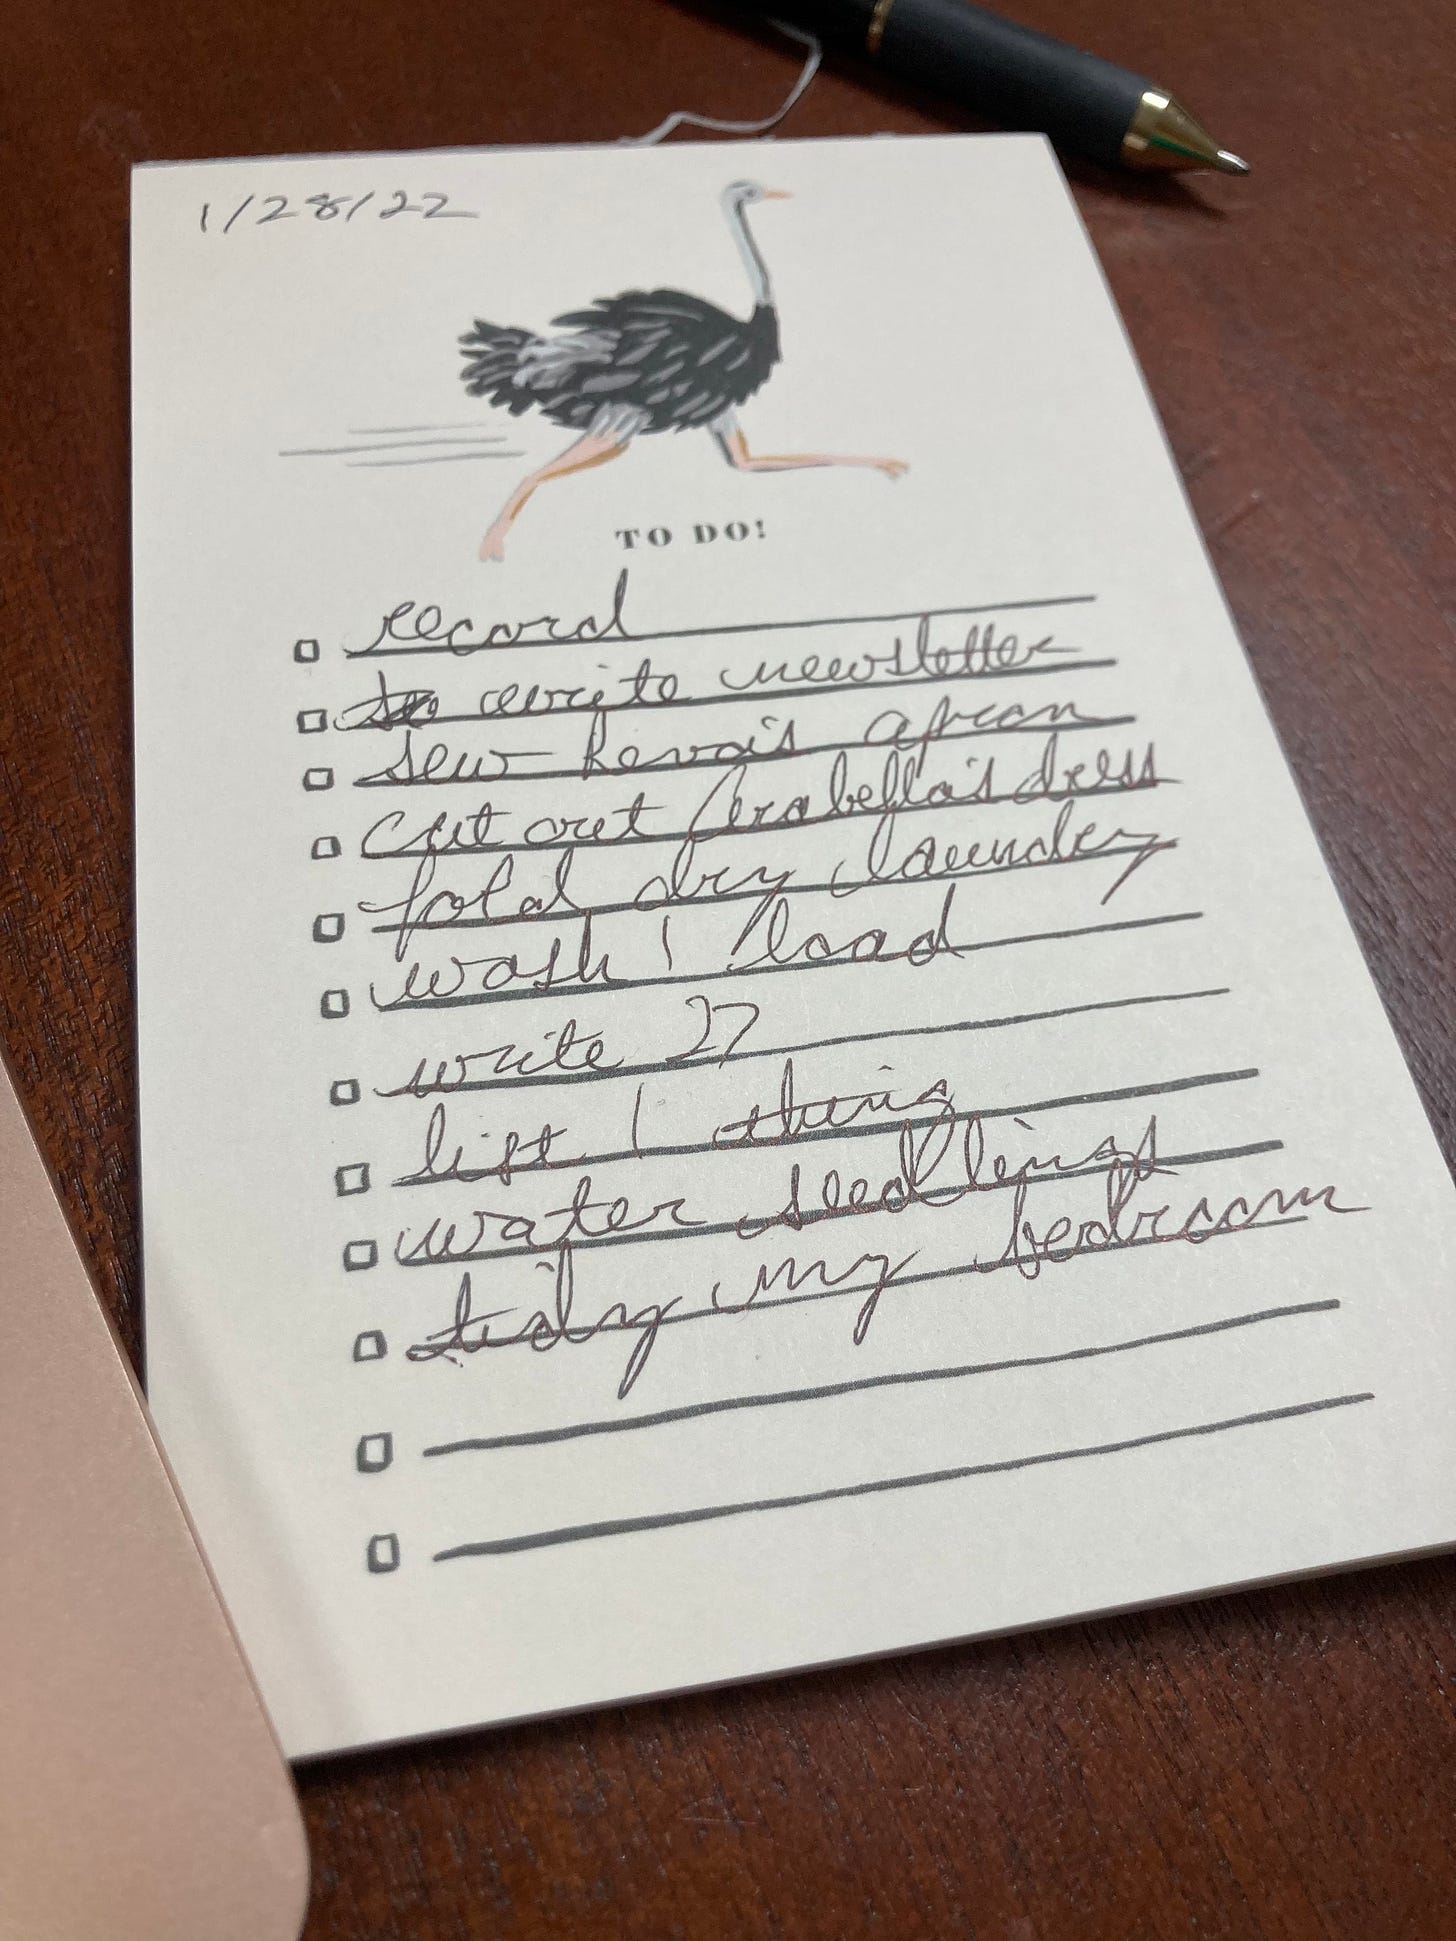 1/28/22
TO DO!
record
write newsletter
sew apron
cut out Arabella's dress
fold dry laundry
wash 1 load
write 27
list 1 thing
water seedlings
tidy my bedroom